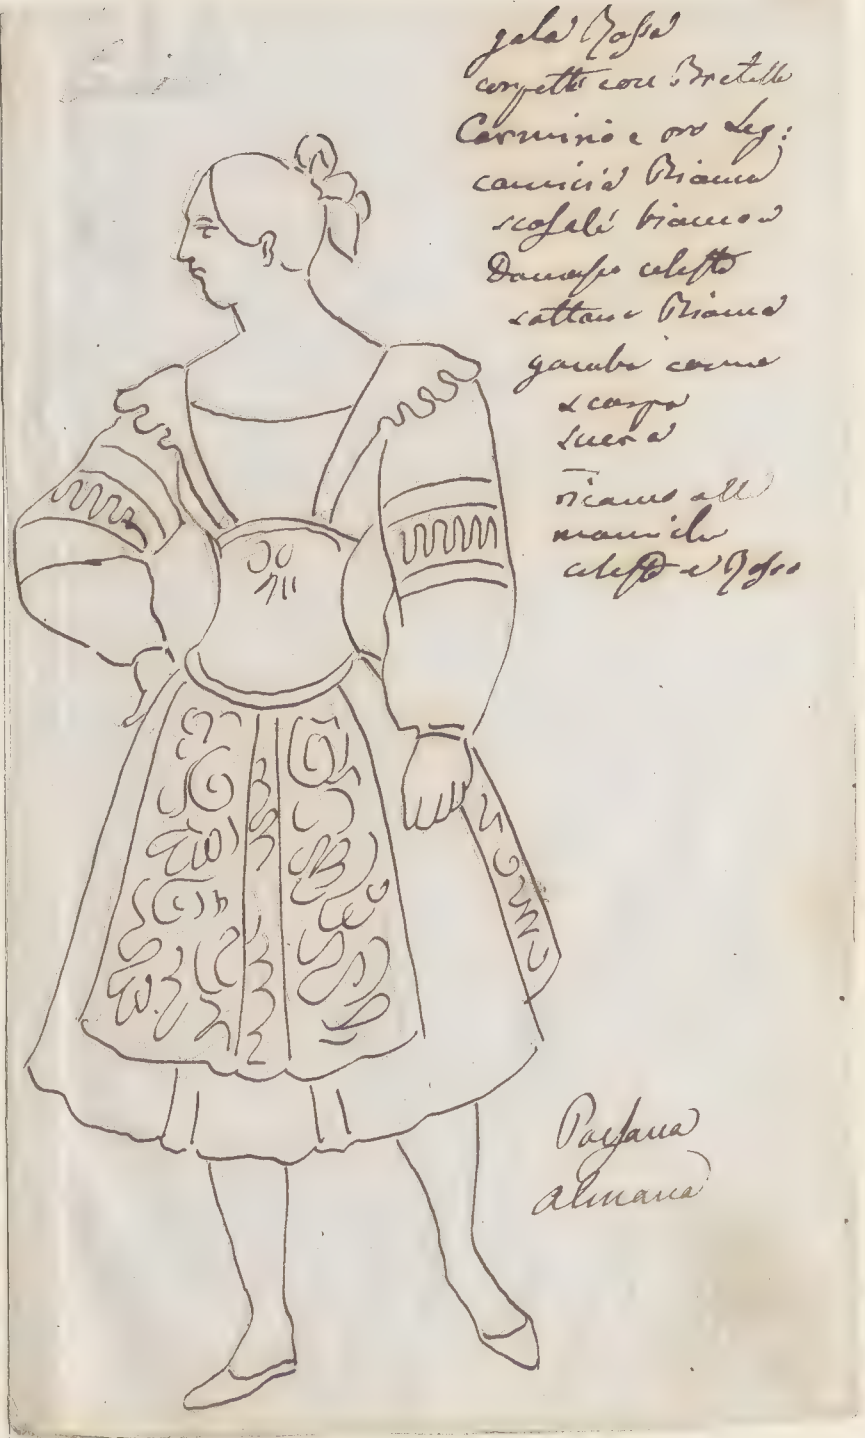 gala Rossa
corpetto con Bretelle
Carminio e oro Leg:
camicia Bianca
scosalé bianco e
Damasco celeste
sottana Bianca
gambe carne
scarpa
nera
ricamo alle
maniche
celeste e Rosso
Paesana
Alemana